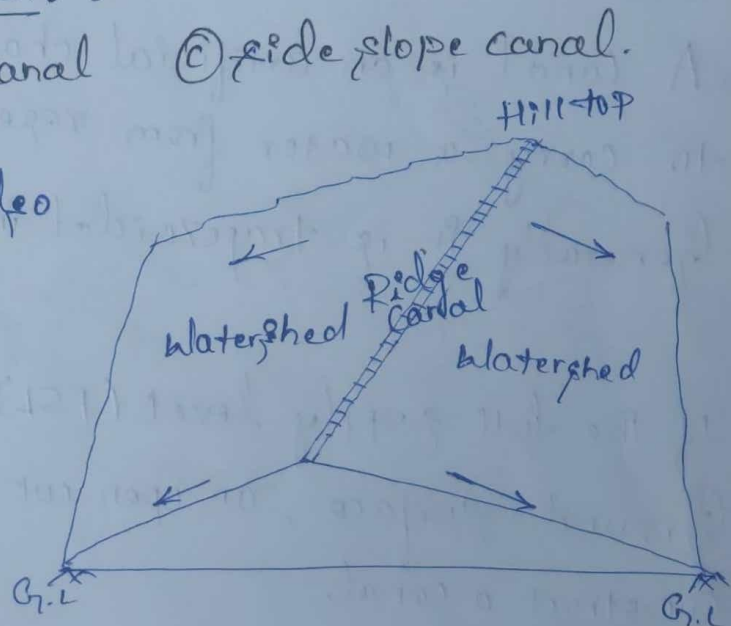 anal © side slope canal.
Hill-top
Ridge
Canal
Watershed
Watershed
G.L
G.L